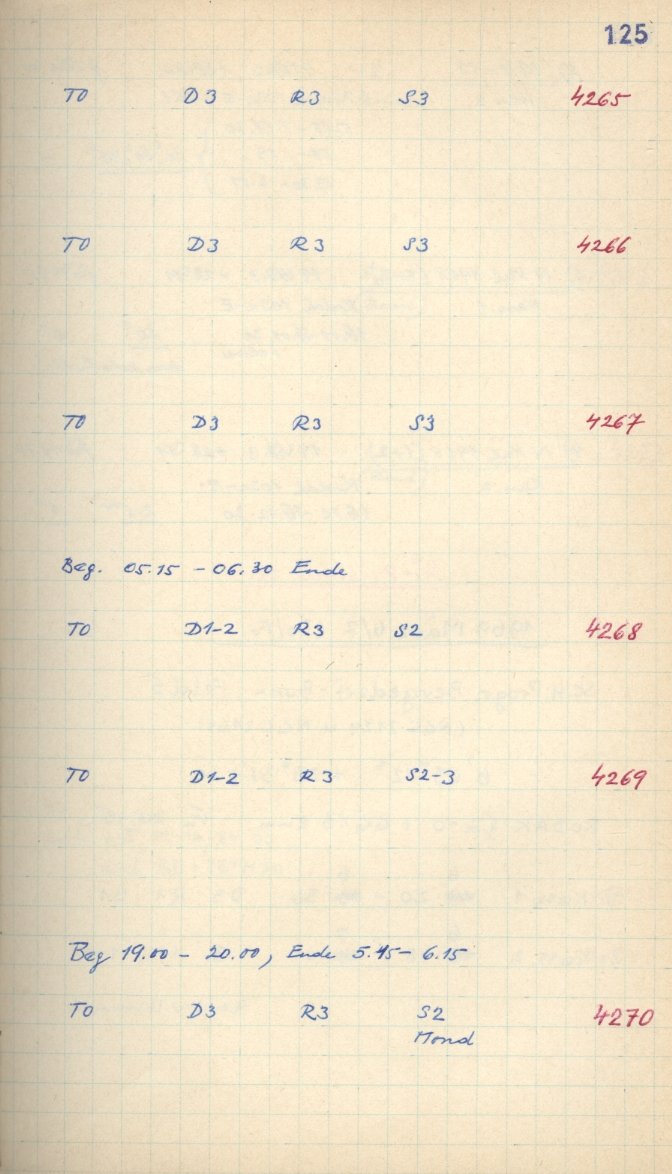 125
TO D3 R3 S3 4265
TO D3 R3 S3 4266
TO D3 R3 S3 4267
Beg. 05.15 - 06.30 Ende
TO D1-2 R3 S2 4268
TO D1-2 R3 S2-3 4269
Beg 19.00 - 20.00, Ende 5.45 - 6.15
TO D3 R3 S2 4270
Mond